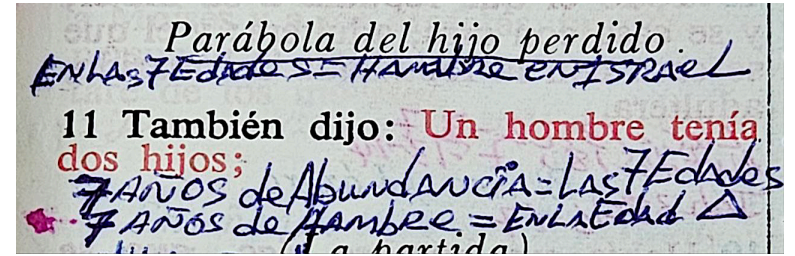 Parábola del hijo perdido.
EN LAS 7 EdAdES = HAMBRE EN ISRAEL
11 También dijo: Un hombre tenía
dos hijos;
7 AÑOS de AbuNdANCiA = LAS 7 EdAdes
7 AÑOS de HAMBRE = EN LA EdAd △
(La partida)